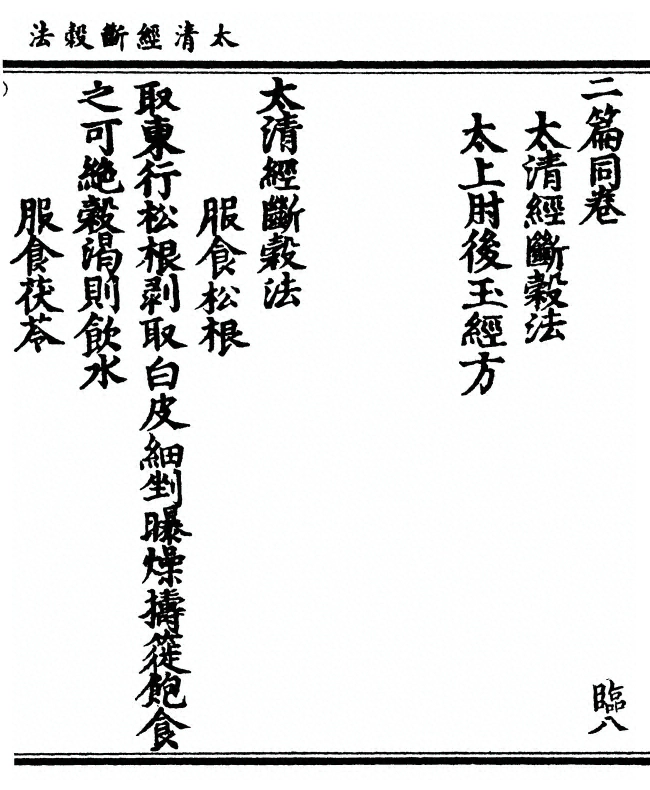 太清經斷穀法
二篇同卷
臨八
太清經斷穀法
太上肘後玉經方
太清經斷穀法
服食松根
取東行松根剥取白皮細剉曝燥擣簁飽食
之可絶穀渴則飲水
服食茯苓